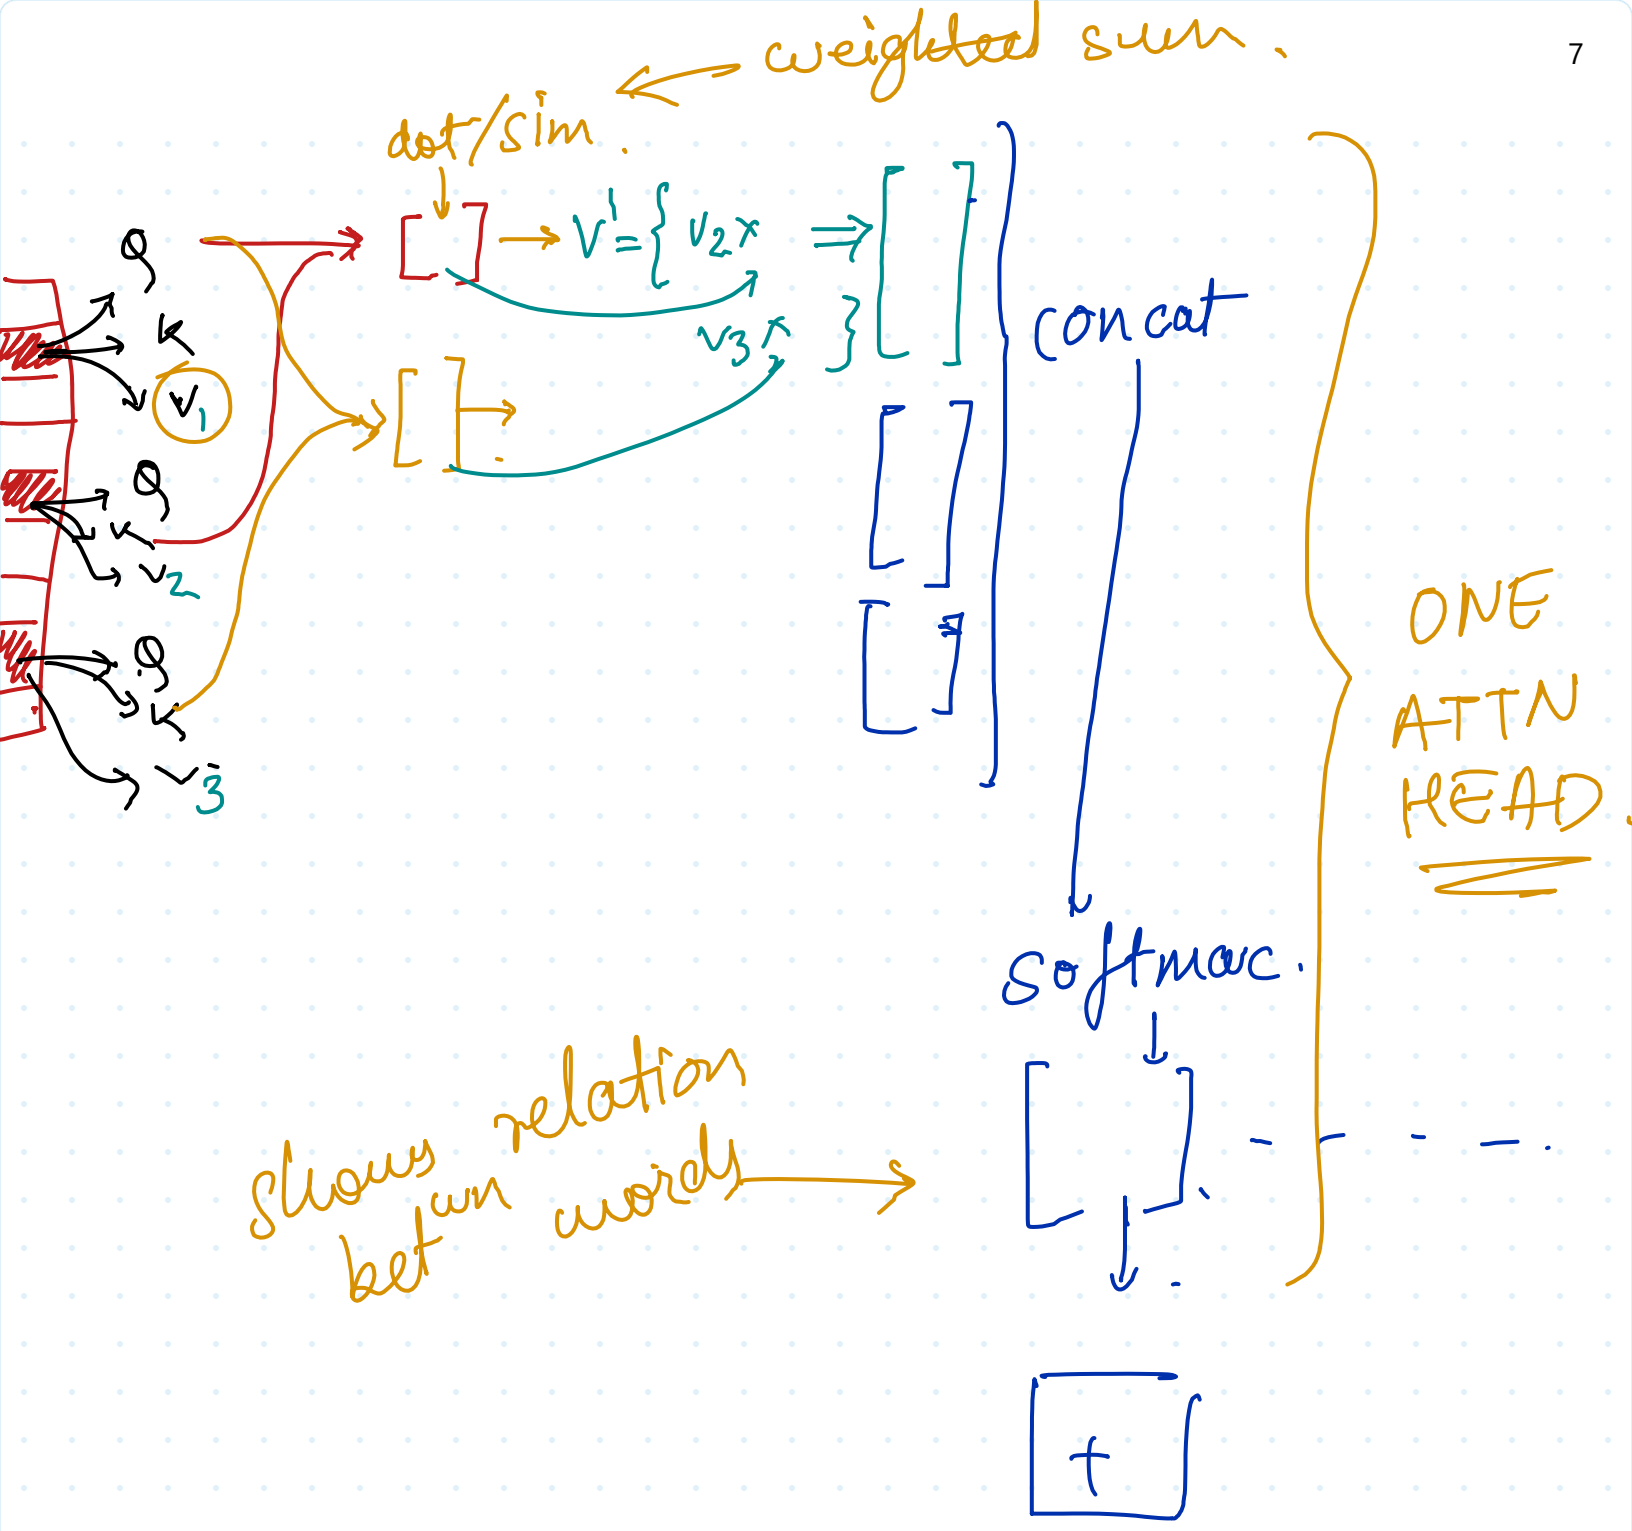 weighted sum.
7
dot/sim.
Q
K
V1
V' = { V2 x
V3 x }
concat
Q
K
V2
Q
K
V3
ONE
ATTN
HEAD.
softmax.
shows relation
betwn words
+